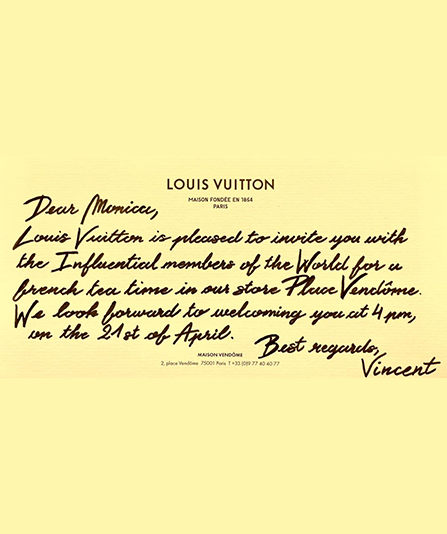 LOUIS VUITTON
MAISON FONDÉE EN 1864
PARIS
Dear Monica,
Louis Vuitton is pleased to invite you with
the Influential members of the World for a
french tea time in our store Place Vendôme.
We look forward to welcoming you at 4 pm,
on the 21st of April.
Best regards,
Vincent
MAISON VENDÔME
2, place Vendôme 75001 Paris T +33 (0)9 77 40 40 77